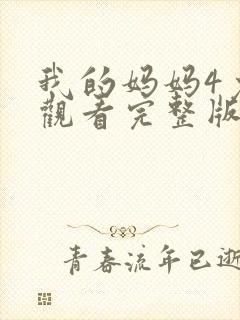 我的妈妈4
觀看完整版
青春流年已逝